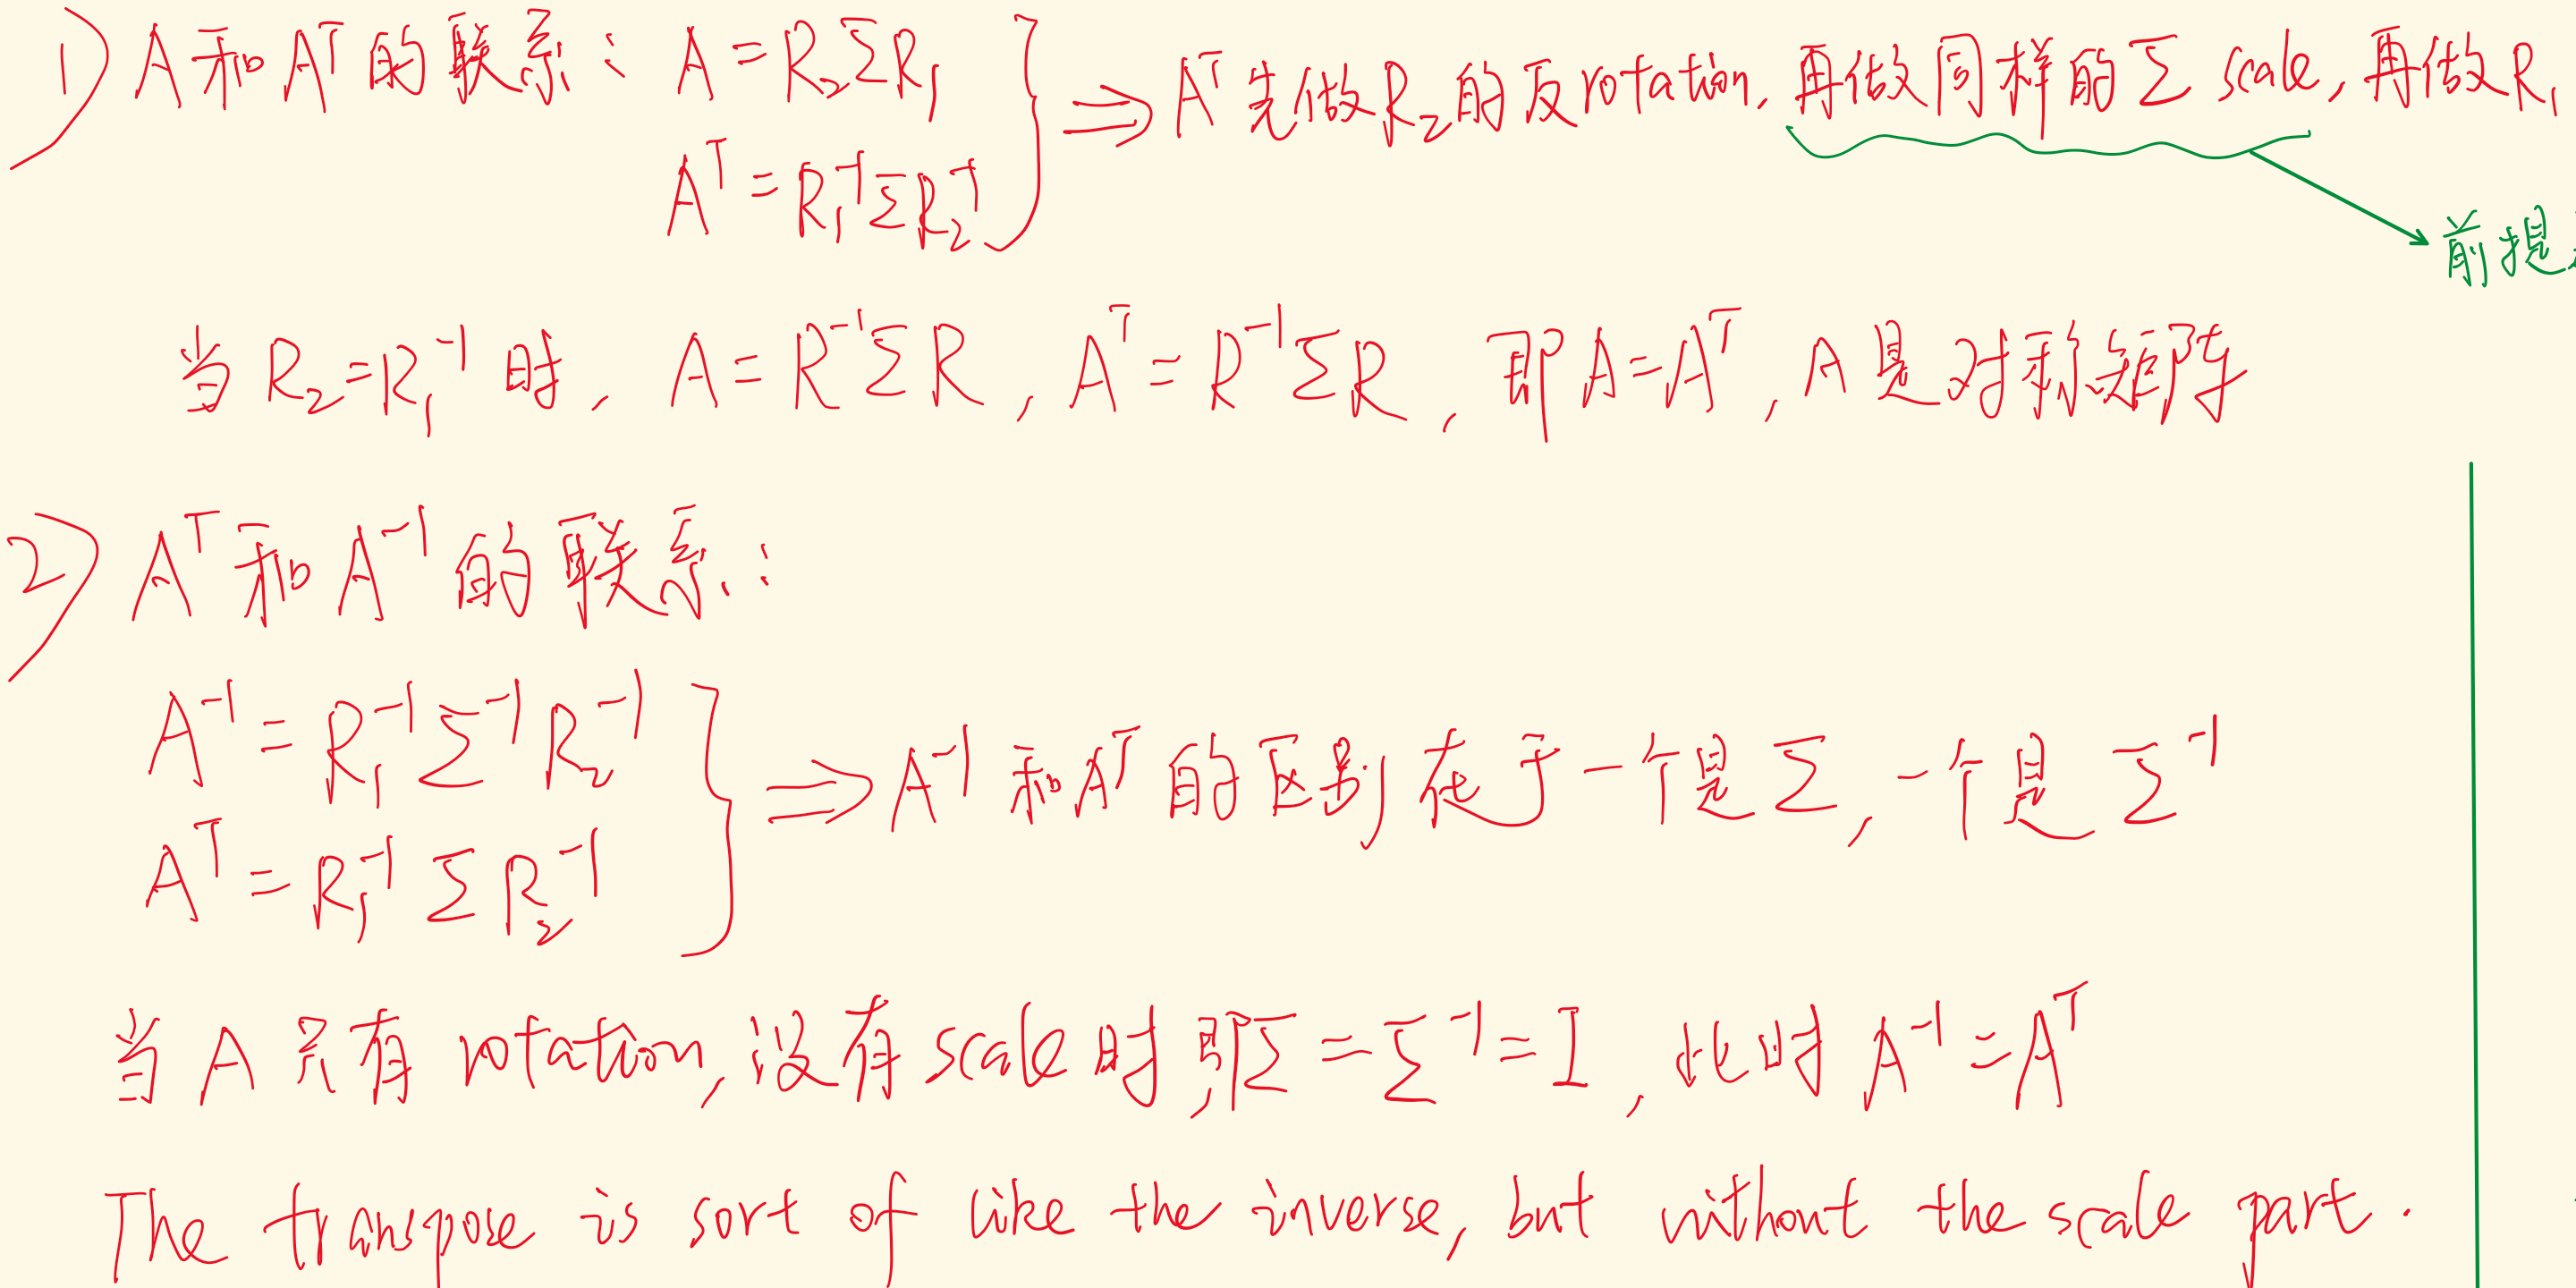 1) A和Aᵀ的联系: A = R₂ΣR₁ ⇒ Aᵀ先做R₂的反rotation, 再做同样的Σ scale, 再做R₁
Aᵀ = R₁⁻¹ΣR₂⁻¹
前提
当R₂=R₁⁻¹时, A = R⁻¹ΣR, Aᵀ = R⁻¹ΣR, 即A=Aᵀ, A是对称矩阵
2) Aᵀ和A⁻¹的联系:
A⁻¹ = R₁⁻¹Σ⁻¹R₂⁻¹
⇒ A⁻¹和Aᵀ的区别在于一个是Σ, 一个是Σ⁻¹
Aᵀ = R₁⁻¹ΣR₂⁻¹
当A只有rotation, 没有scale时, 即Σ = Σ⁻¹ = I, 此时A⁻¹ = Aᵀ
The transpose is sort of like the inverse, but without the scale part.